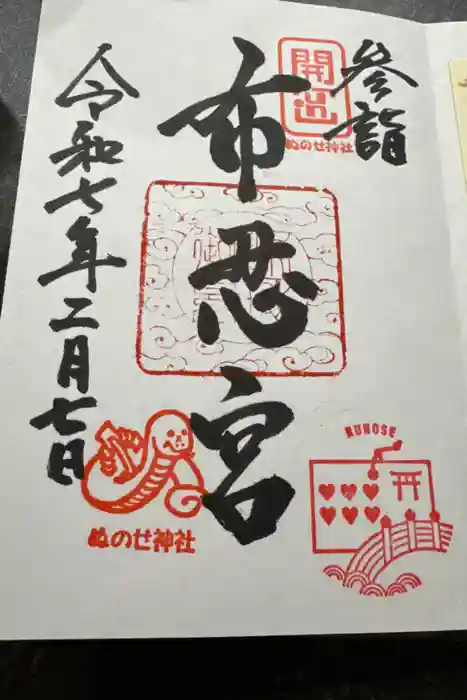 参詣
開運
ぬのせ神社
布忍宮
令和七年二月七日
ぬのせ神社
NUNOSE